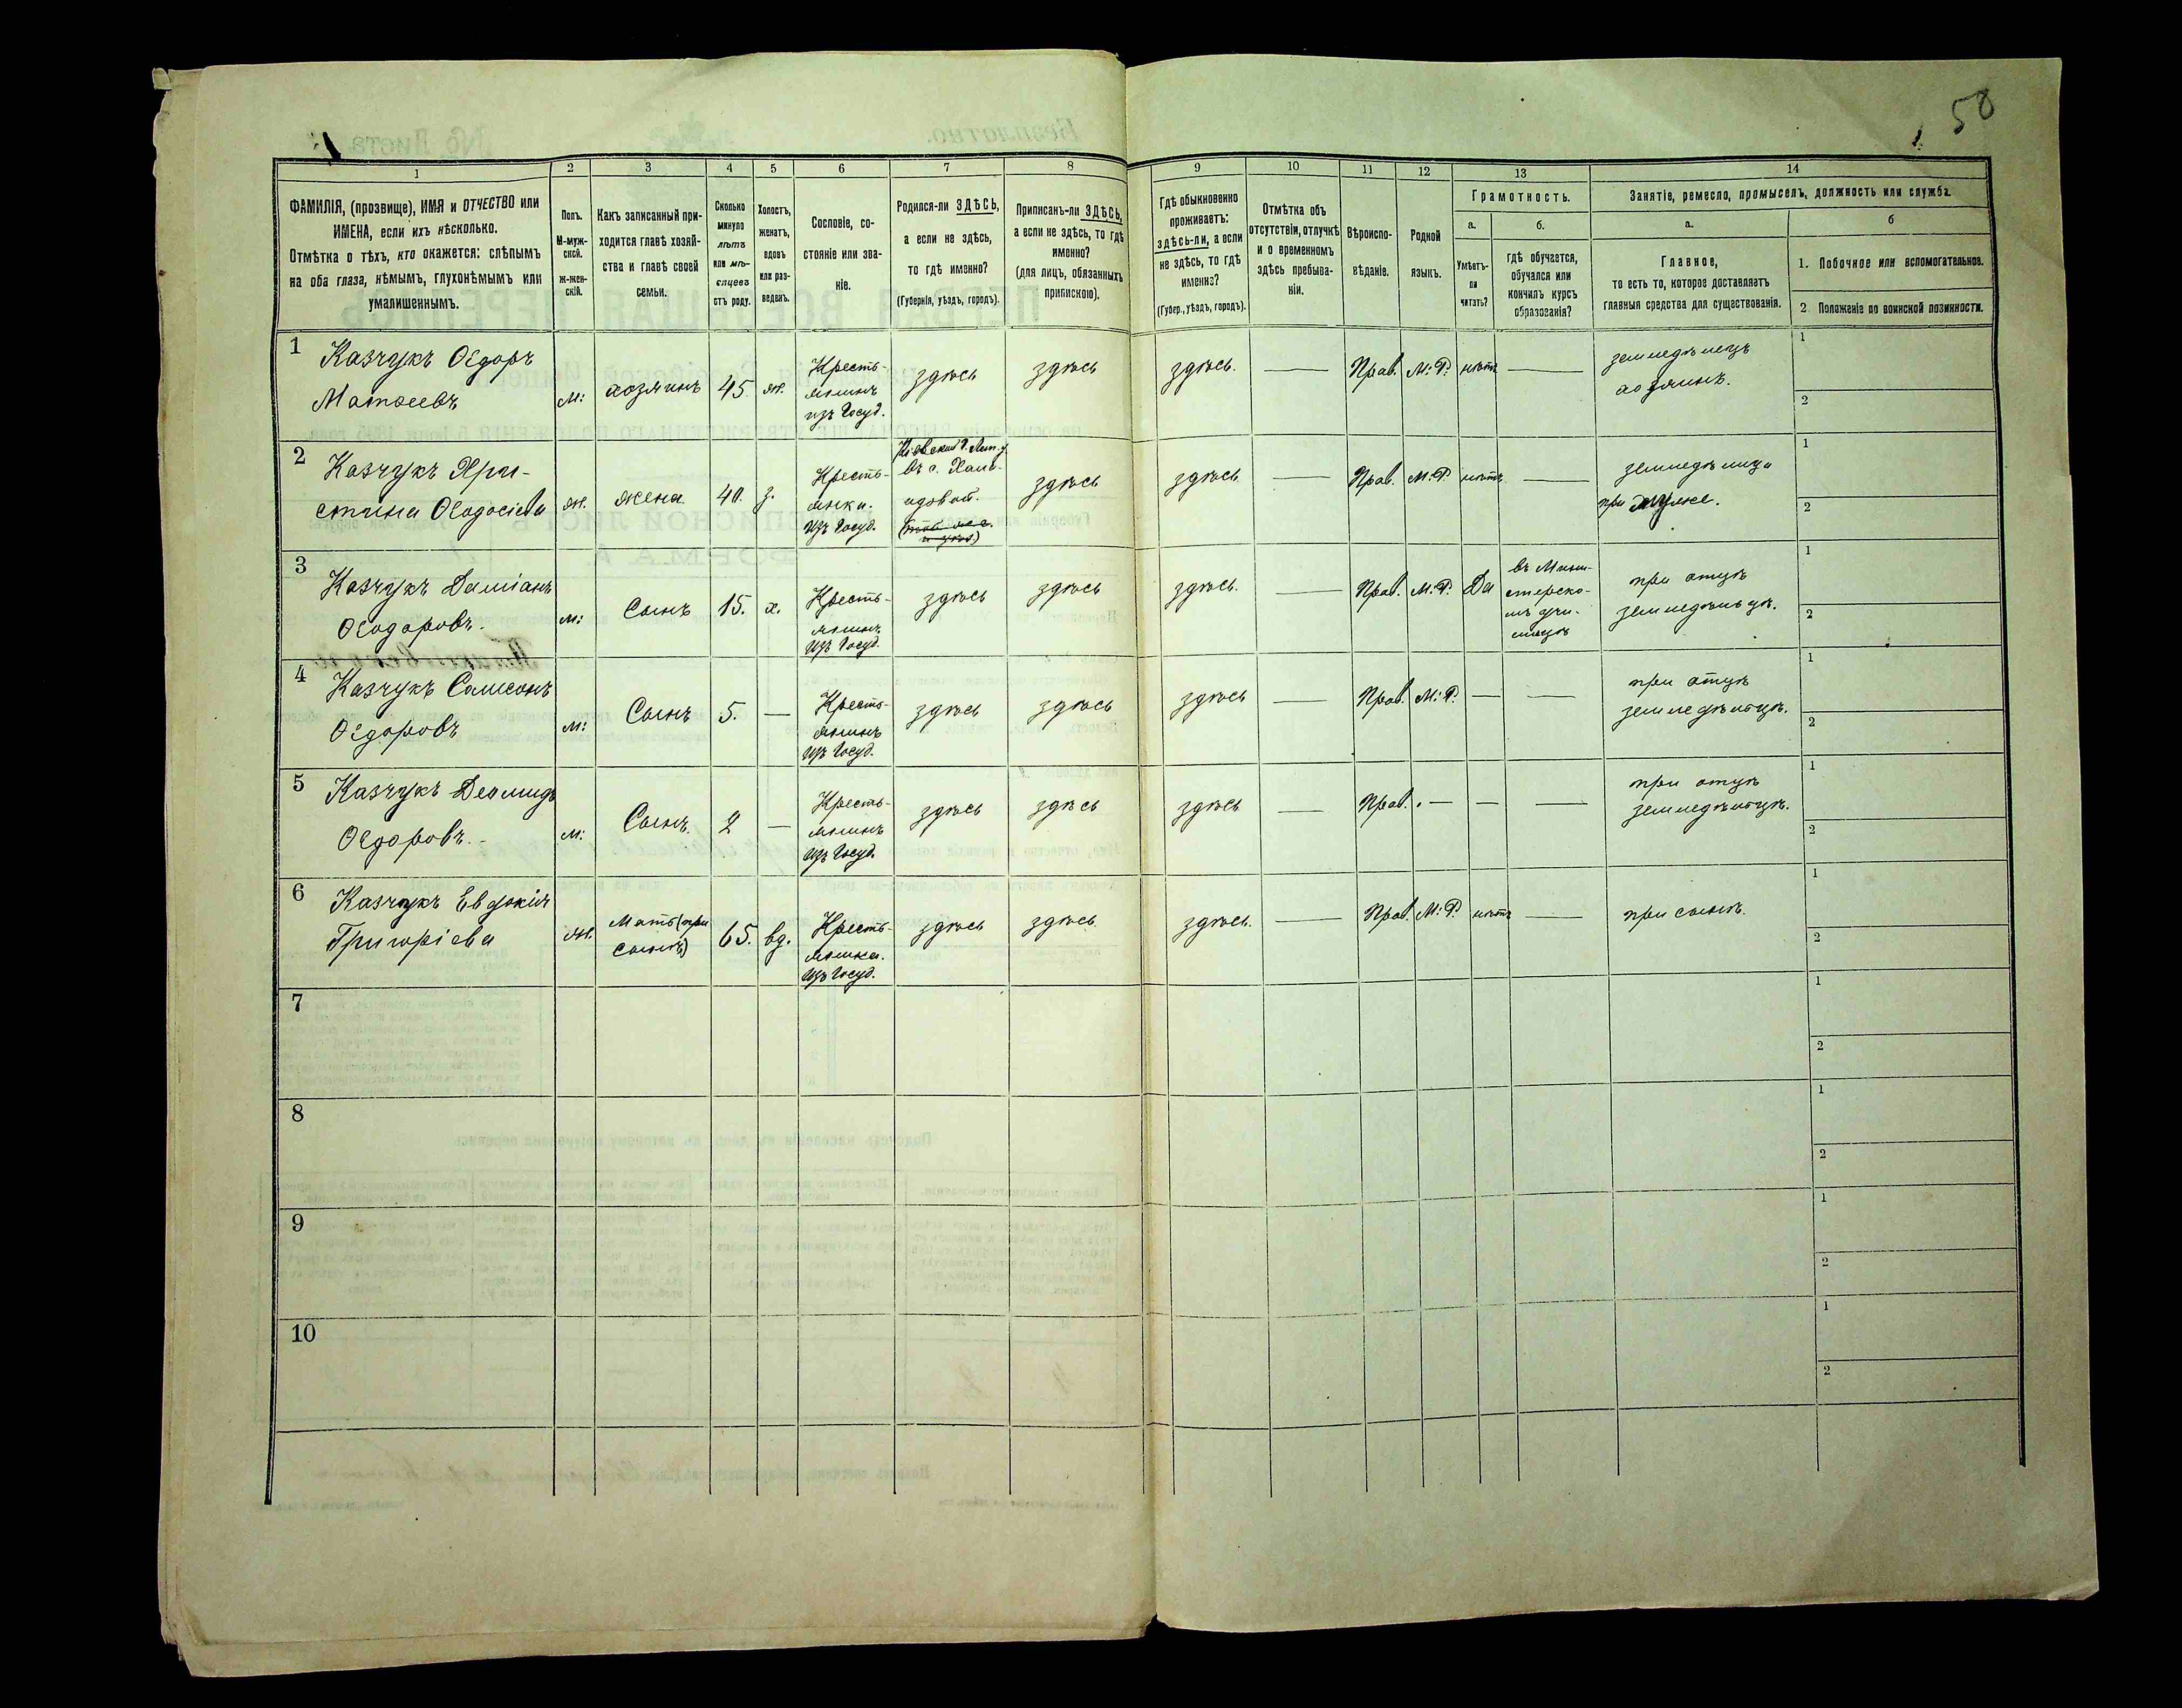 50
1
2
3
4
5
6
7
8
9
10
11
12
13
14
ФАМИЛІЯ, (прозвище), ИМЯ и ОТЧЕСТВО или
ИМЕНА, если ихъ нѣсколько.
Отмѣтка о тѣхъ, кто окажется: слѣпымъ
на оба глаза, нѣмымъ, глухонѣмымъ или
умалишеннымъ.
Полъ.
М-муж-
ской.
ж-жен-
скій.
Какъ записанный при-
ходится главѣ хозяй-
ства и главѣ своей
семьи.
Сколько
минуло
лѣтъ
или мѣ-
сяцевъ
отъ роду.
Холостъ,
женатъ,
вдовъ
или раз-
веденъ.
Сословіе, со-
стояніе или зва-
ніе.
Родился-ли ЗДѢСЬ,
а если не здѣсь,
то гдѣ именно?
(Губернія, уѣздъ, городъ).
Приписанъ-ли ЗДѢСЬ,
а если не здѣсь, то гдѣ
именно?
(для лицъ, обязанныхъ
припискою).
Гдѣ обыкновенно
проживаетъ:
здѣсь-ли, а если
не здѣсь, то гдѣ
именно?
(Губер., уѣздъ, городъ).
Отмѣтка объ
отсутствіи, отлучкѣ
и о временномъ
здѣсь пребыва-
ніи.
Вѣроиспо-
вѣданіе.
Родной
языкъ.
Грамотность.
а.
б.
Умѣетъ-
ли
читать?
гдѣ обучается,
обучался или
кончилъ курсъ
образованія?
Занятіе, ремесло, промыселъ, должность или служба.
а.
б
Главное,
то есть то, которое доставляетъ
главныя средства для существованія.
1. Побочное или вспомогательное.
2. Положеніе по воинской повинности.
1
Казчукъ Ѳедоръ
Матѳеевъ
м:
хозяинъ
45
ж.
Кресть-
янинъ
изъ Госуд.
здѣсь
здѣсь
здѣсь.
—
Прав.
М:Р.
нѣтъ
—
земледѣлецъ
хозяинъ.
1
2
2
Казчукъ Хри-
стина Ѳеодосіева
ж.
жена
40.
з.
Кресть-
янка.
Изъ Госуд.
Кіевской г. Лип. у.
въ с.
здѣсь
здѣсь.
—
Прав.
М:Р.
нѣтъ
—
земледѣлица
при мужѣ.
1
2
3
Казчукъ Даміанъ
Ѳеодоровъ.
м:
Сынъ
15.
х.
Кресть-
янинъ
Изъ Госуд.
здѣсь
здѣсь
здѣсь.
—
Прав.
М:Р.
Да
въ Мини-
стерско-
мъ учи-
лищѣ
при отцѣ
земледѣльцѣ.
1
2
4
Казчукъ Самсонъ
Ѳедоровъ
м:
Сынъ
5.
—
Кресть-
янинъ
Изъ Госуд.
здѣсь
здѣсь
здѣсь
—
Прав.
М:Р.
—
—
при отцѣ
земледѣльцѣ.
1
2
5
Казчукъ Деомидъ
Ѳедоровъ.-
м:
Сынъ.
2
—
Кресть-
янинъ
Изъ Госуд.
здѣсь
здѣсь
здѣсь
—
Прав.
—
—
—
при отцѣ
земледѣльцѣ.
1
2
6
Казчукъ Евдокія
Григоріева
ж.
Мать (при
сынѣ)
65.
вд.
Кресть-
янка.
Изъ Госуд.
здѣсь
здѣсь
здѣсь.
—
Прав.
М:Р.
нѣтъ
—
при сынѣ.
1
2
7
1
2
8
1
2
9
1
2
10
1
2